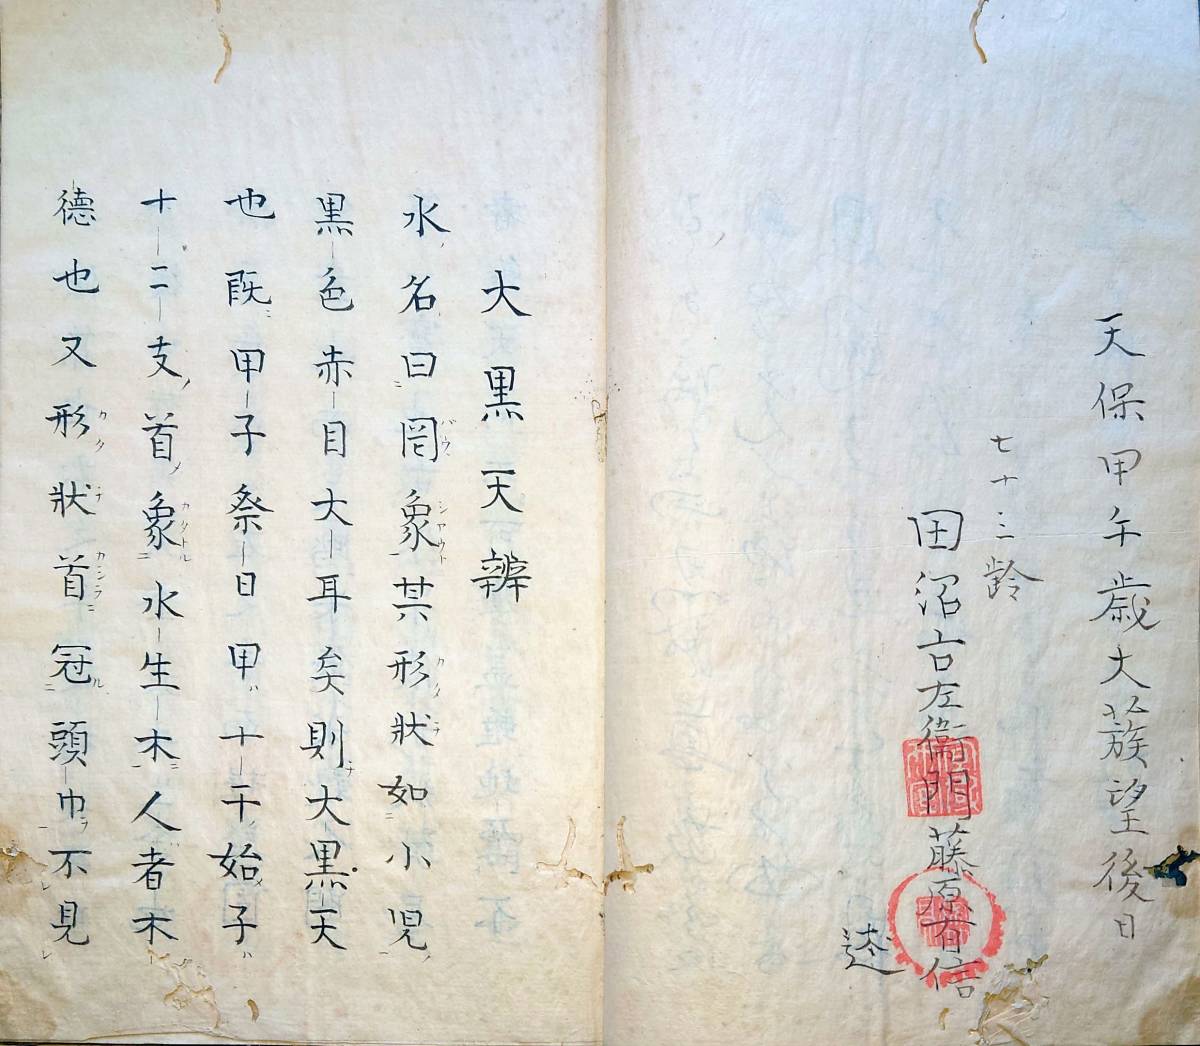 天保甲午歳大蔟望後日
七十三齢
田沼吉左衞門藤原春信
述
大黒天辨
水名曰罔象其形狀如小児
黒色赤目大耳矣則大黒天
也既甲子祭日甲十干始子
十二支首象水生木人者木
德也又形狀首冠頭巾不見